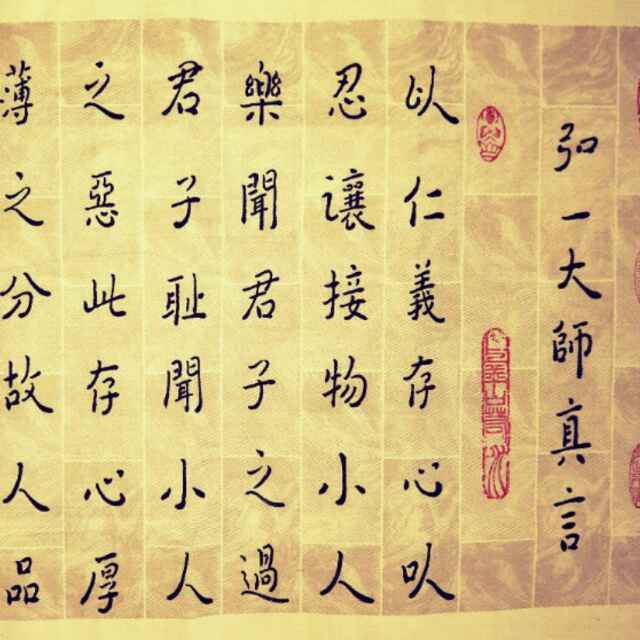 弘一大師真言
以仁義存心以
忍讓接物小人
樂聞君子之過
君子耻聞小人
之惡此存心厚
薄之分故人品